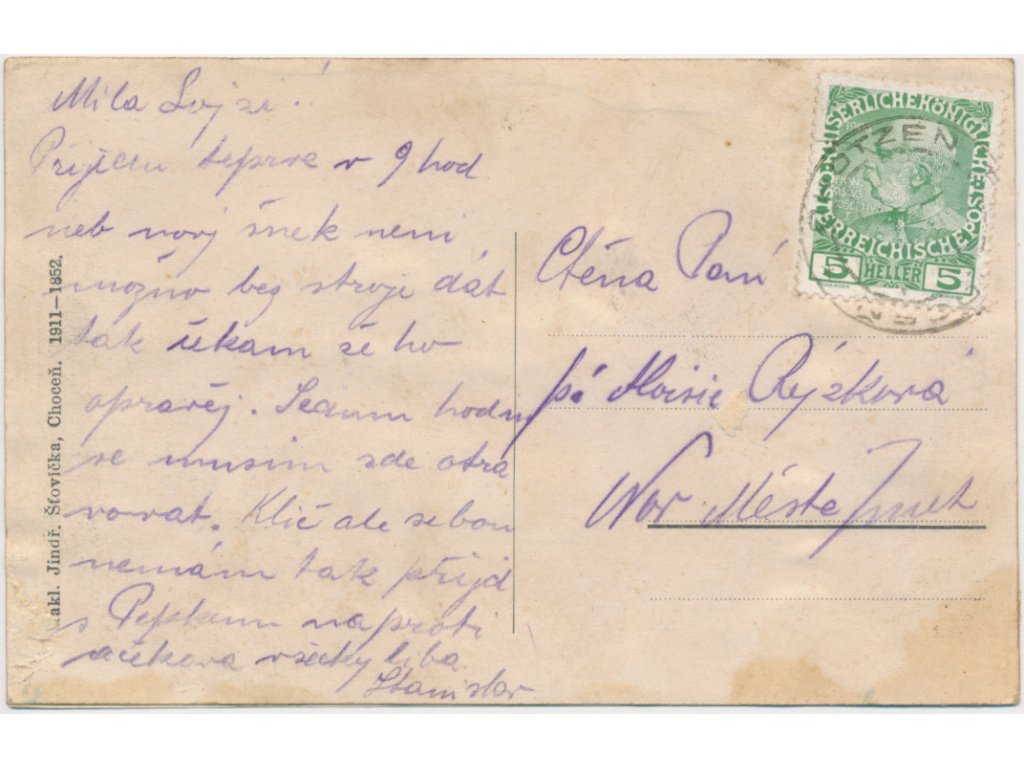 Milá Lojzi!
Prijedu teprve v 9 hod
neb nový šnek neni
možno bez stroje dát
tak čekam že ho
opravěj. Sedum hodin
se musim zde otra
vovat. Klič ale sebou
nemám tak přijd
s Pepkem naproti
všecky liba
Stanislav
Nakl. Jindř. Šťovička, Choceň. 1911–1852.
KAISERLICHE KÖNIGLICHE
ÖSTERREICHISCHE POST
5 HELLER 5
Ctěna Pani
Aloisie Rýzková
Nov. Městě